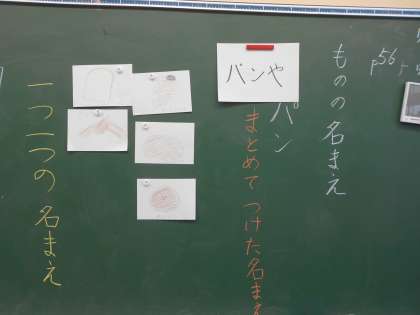 ものの名まえ
P56
パンや
パン
まとめてつけた名まえ
一つ一つの名まえ